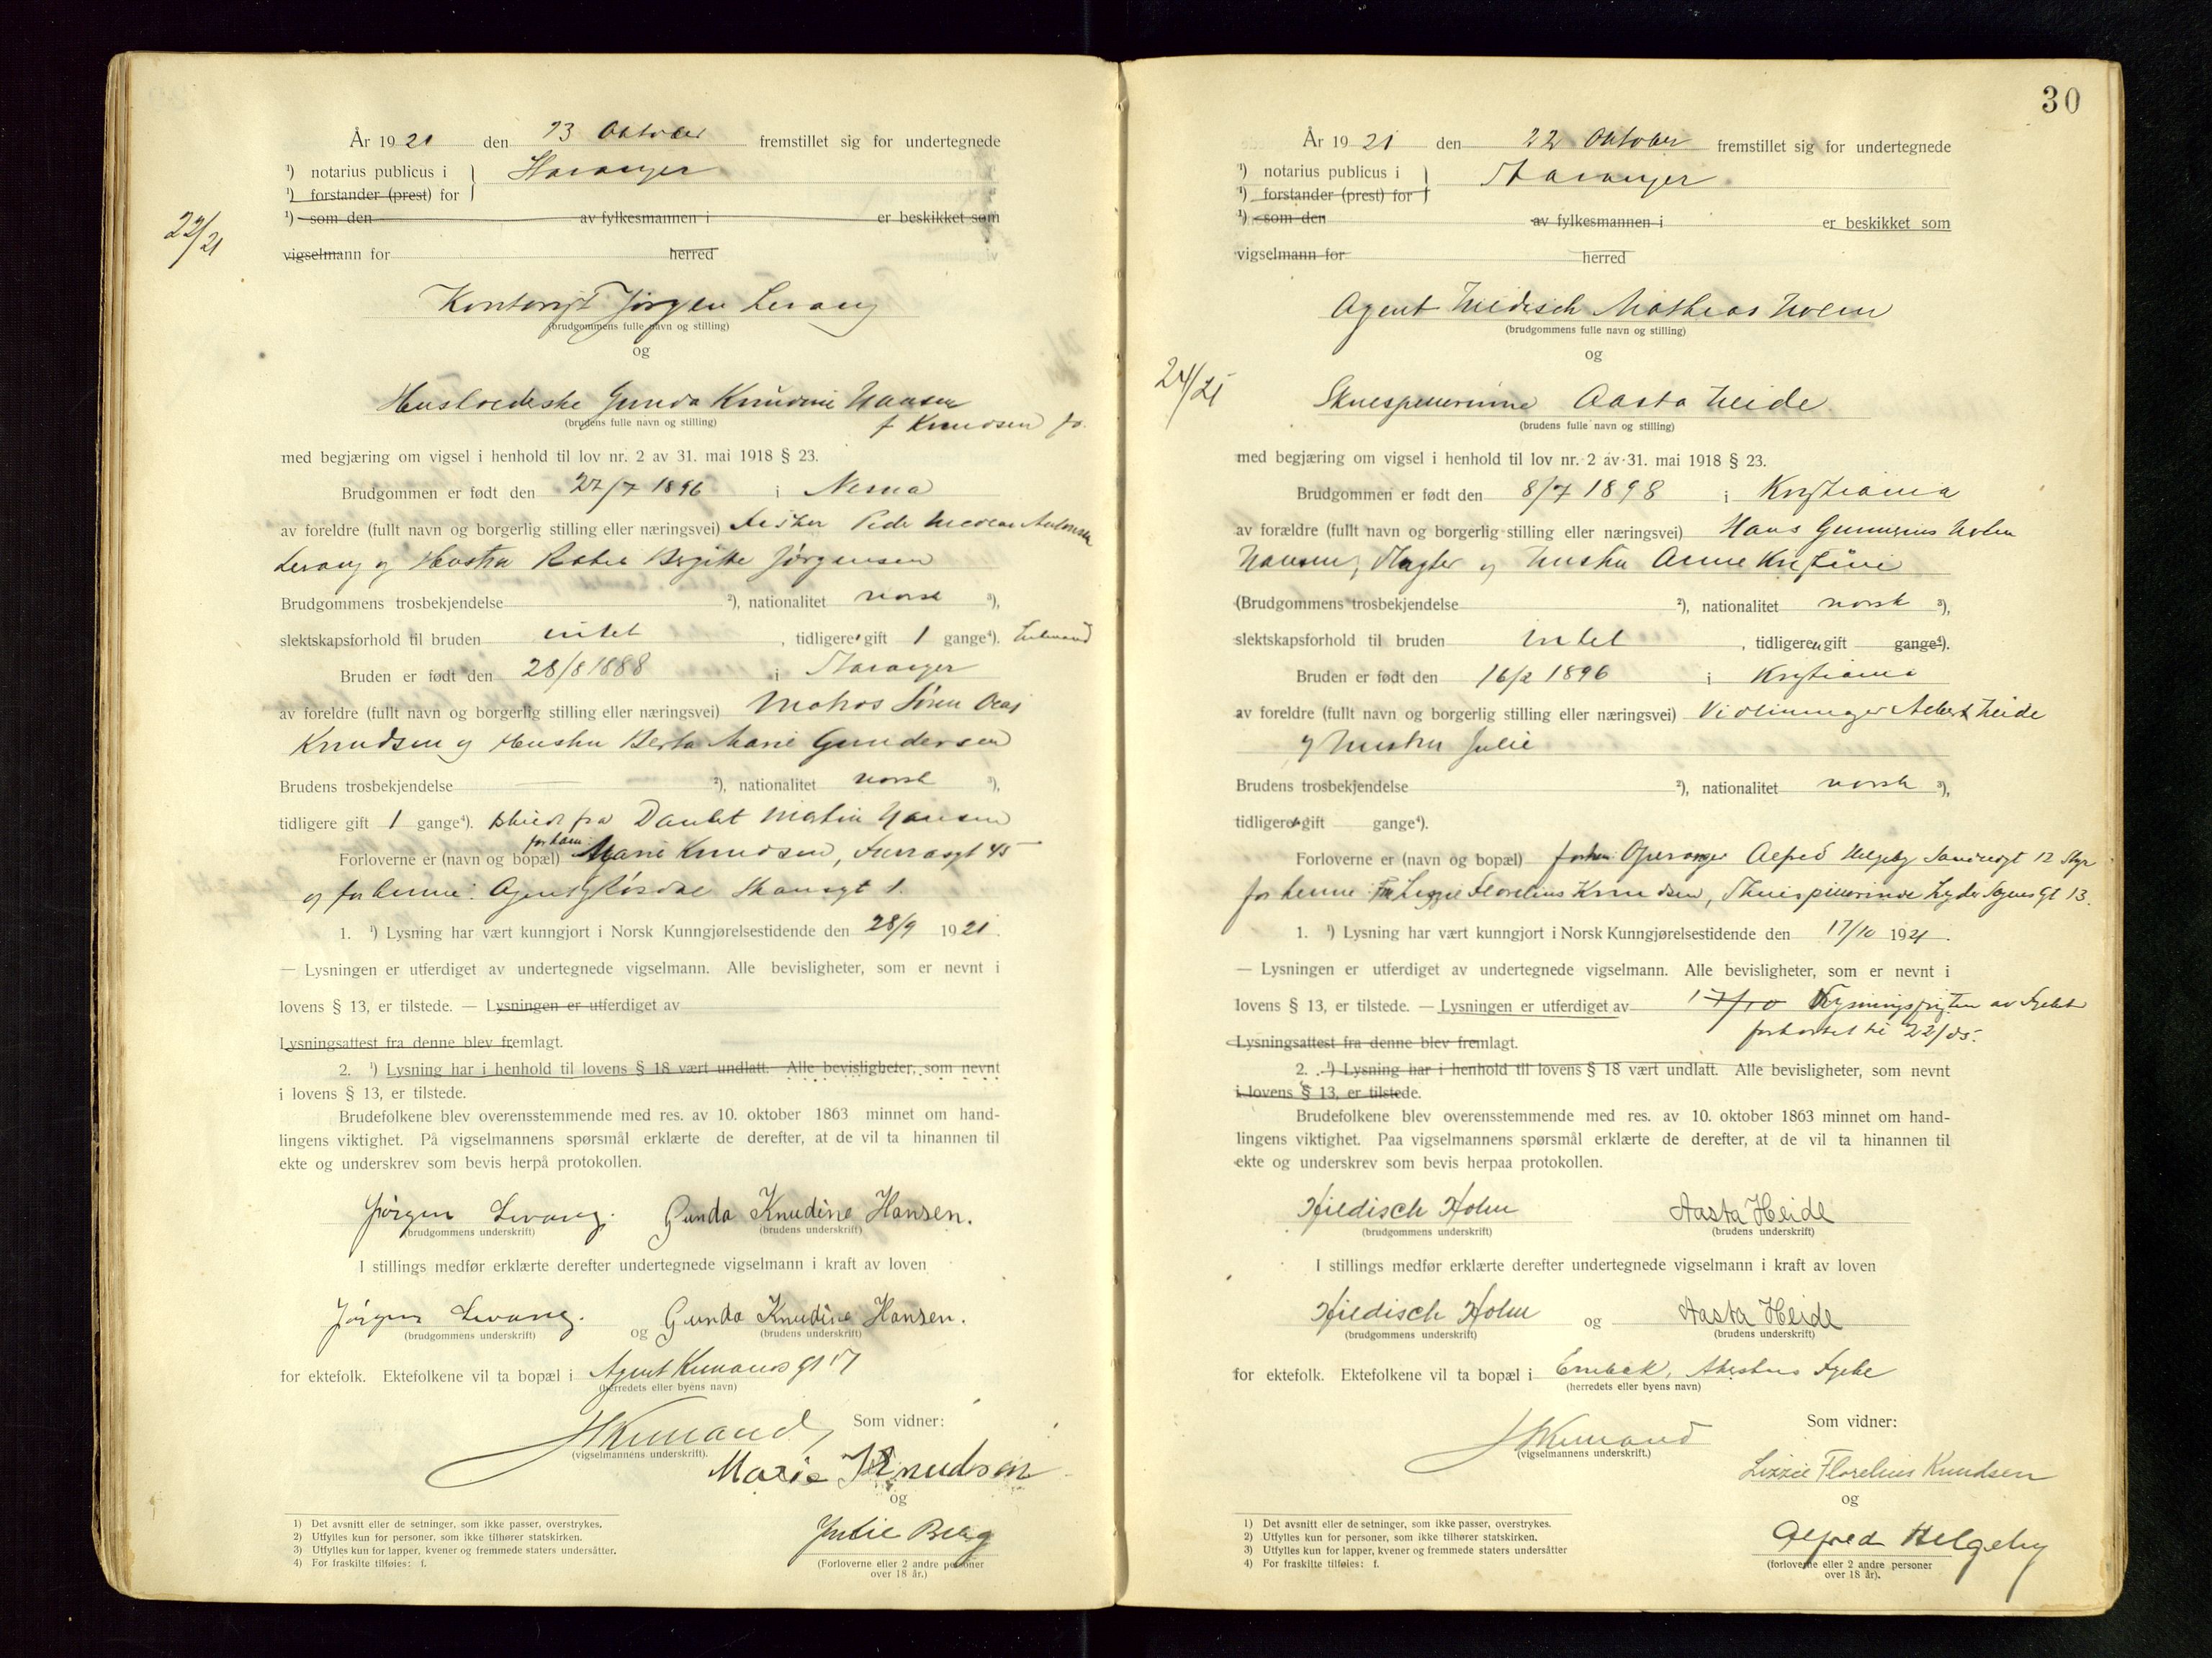 År 1921 den 13 Oktober fremstillet sig for undertegnede
¹) notarius publicus i Stavanger
¹) forstander (prest) for
¹) som den av fylkesmannen i er beskikket som
22/21
vigselmann for herred
Kontorist Jørgen Levang
(brudgommens fulle navn og stilling)
og
Gunda Knudine Hansen
(brudens fulle navn og stilling) f Knudsen
med begjæring om vigsel i henhold til lov nr. 2 av 31. mai 1918 § 23.
Brudgommen er født den 27/7 1896 i
av foreldre (fullt navn og borgerlig stilling eller næringsvei) Fisker Peder
Levang og Hustru Bergitte Jørgensen
Brudgommens trosbekjendelse ²), nationalitet norsk ³),
slektskapsforhold til bruden intet, tidligere gift 1 gange⁴).
Bruden er født den 28/8 1888 i Stavanger
av foreldre (fullt navn og borgerlig stilling eller næringsvei) Matros Søren
Knudsen og Hustru Berta Marie Gundersen
Brudens trosbekjendelse ²), nationalitet norsk ³),
tidligere gift 1 gange⁴). skilt fra Martin Hansen
Forloverne er (navn og bopæl) for ham Marie Knudsen, 45
og for henne:
1. ¹) Lysning har vært kunngjort i Norsk Kunngjørelsestidende den 28/9 1921.
— Lysningen er utferdiget av undertegnede vigselmann. Alle bevisligheter, som er nevnt i
lovens § 13, er tilstede. — Lysningen er utferdiget av
Lysningsattest fra denne blev fremlagt.
2. ¹) Lysning har i henhold til lovens § 18 vært undlatt. Alle bevisligheter, som nevnt
i lovens § 13, er tilstede.
Brudefolkene blev overensstemmende med res. av 10. oktober 1863 minnet om hand-
lingens viktighet. På vigselmannens spørsmål erklærte de derefter, at de vil ta hinannen til
ekte og underskrev som bevis herpå protokollen.
Jørgen Levang. Gunda Knudine Hansen.
(brudgommens underskrift) (brudens underskrift)
I stillings medfør erklærte derefter undertegnede vigselmann i kraft av loven
Jørgen Levang. og Gunda Knudine Hansen.
(brudgommens underskrift) (brudens underskrift)
for ektefolk. Ektefolkene vil ta bopæl i
(herredets eller byens navn)
Som vidner:
(vigselmannens underskrift).
Marie Knudsen
og
Julie Berg
(Forloverne eller 2 andre personer
over 18 år.)
1) Det avsnitt eller de setninger, som ikke passer, overstrykes.
2) Utfylles kun for personer, som ikke tilhører statskirken.
3) Utfylles kun for lapper, kvener og fremmede staters undersåtter.
4) For fraskilte tilføies: f.
30
År 1921 den 22 Oktober fremstillet sig for undertegnede
¹) notarius publicus i Stavanger
¹) forstander (prest) for
¹) som den av fylkesmannen i er beskikket som
vigselmann for herred
Agent Hildisch Mathias Holm
(brudgommens fulle navn og stilling)
og
24/21
Skuespillerinne Aasta Heide
(brudens fulle navn og stilling)
med begjæring om vigsel i henhold til lov nr. 2 av 31. mai 1918 § 23.
Brudgommen er født den 8/7 1898 i Kristiania
av forældre (fullt navn og borgerlig stilling eller næringsvei) Hans Gunnerius Holm
Hansen, og hustru Anne Kristine
(Brudgommens trosbekjendelse ²), nationalitet norsk ³),
slektskapsforhold til bruden intet, tidligere gift gange⁴).
Bruden er født den 16/2 1896 i Kristiania
av foreldre (fullt navn og borgerlig stilling eller næringsvei) Albert Heide
og hustru Julie
Brudens trosbekjendelse ²), nationalitet norsk ³),
tidligere gift gange⁴).
Forloverne er (navn og bopæl) for ham Alfred Helgeby 12
for henne Lizzie Florelius Knudsen, Skuespillerinde Lyder Sagens Gt 13.
1. ¹) Lysning har vært kunngjort i Norsk Kunngjørelsestidende den 17/10 1921.
— Lysningen er utferdiget av undertegnede vigselmann. Alle bevisligheter, som er nevnt i
lovens § 13, er tilstede. — Lysningen er utferdiget av 17/10 Lysningsfristen av
forkortet til 22/ds.
Lysningsattest fra denne blev fremlagt.
2. ¹) Lysning har i henhold til lovens § 18 vært undlatt. Alle bevisligheter, som nevnt
i lovens § 13, er tilstede.
Brudefolkene blev overensstemmende med res. av 10. oktober 1863 minnet om hand-
lingens viktighet. Paa vigselmannens spørsmål erklærte de derefter, at de vil ta hinannen til
ekte og underskrev som bevis herpaa protokollen.
Hildisch Holm Aasta Heide
(brudgommens underskrift) (brudens underskrift)
I stillings medfør erklærte derefter undertegnede vigselmann i kraft av loven
Hildisch Holm og Aasta Heide
(brudgommens underskrift) (brudens underskrift)
for ektefolk. Ektefolkene vil ta bopæl i Enebak, Akershus Fylke
(herredets eller byens navn)
Som vidner:
(vigselmannens underskrift.)
Lizzie Florelius Knudsen
og
Alfred Helgeby
(forloverne eller 2 andre personer
over 18 år).
1) Det avsnitt eller de setninger, som ikke passer, overstrykes.
2) Utfylles kun for personer, som ikke tilhører statskirken.
3) Utfylles kun for lapper, kvener og fremmede staters undersåtter
4) For fraskilte tilføies: f.